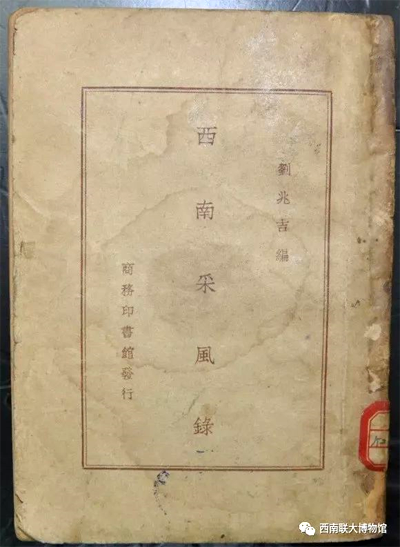 劉兆吉編
西南采風錄
商務印書館發行
西南联大博物馆